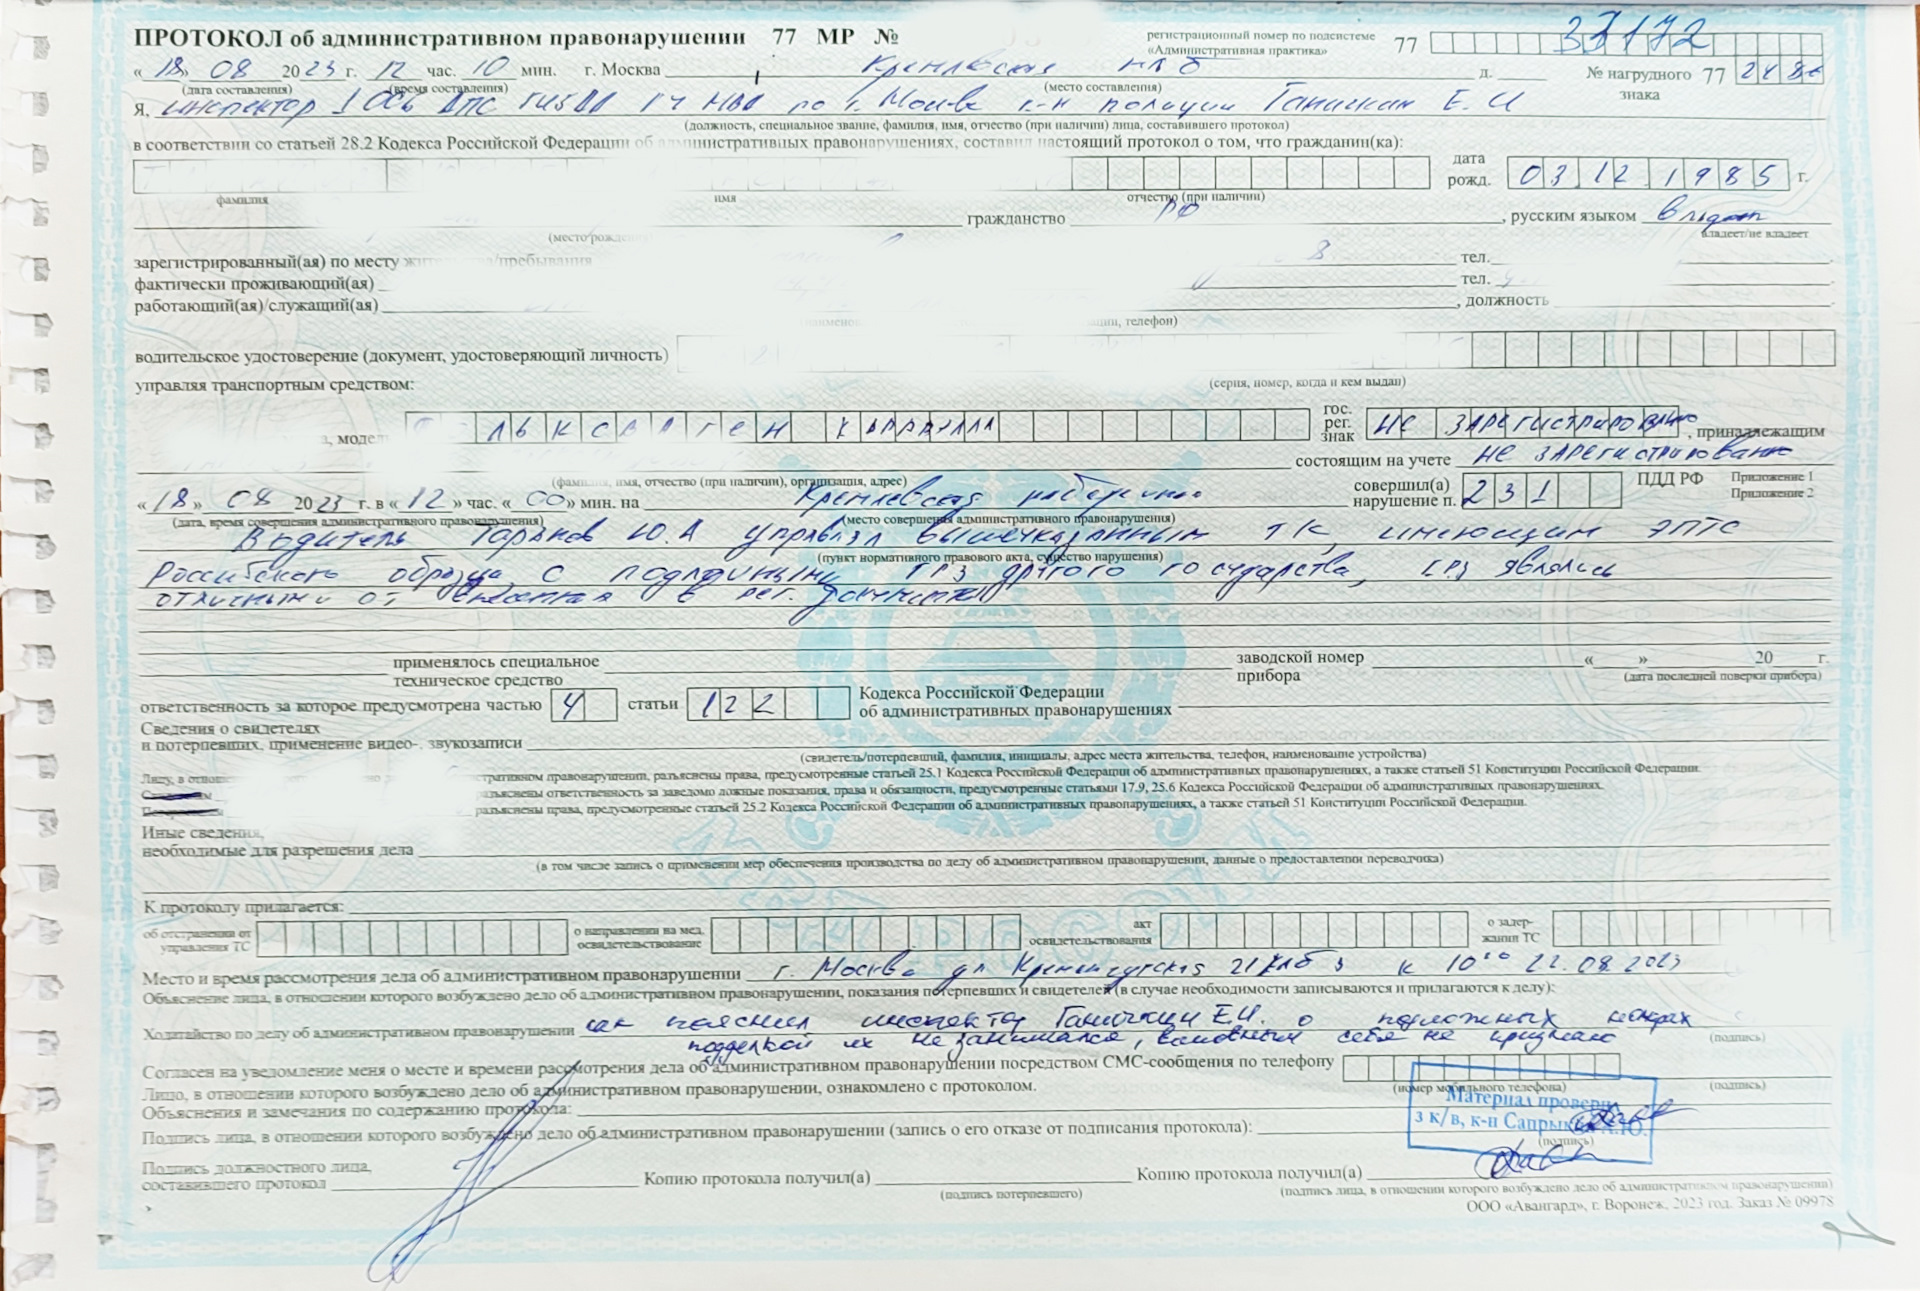 ПРОТОКОЛ об административном правонарушении 77 МР №
регистрационный номер по подсистеме «Административная практика» 77 33172
« 18 » 08 2023 г. 12 час. 10 мин. г. Москва Кремлевская наб д. № нагрудного знака 77
(дата составления) (время составления) (место составления)
Я, инспектор ДПС ГИБДД по г. Москве к-н полиции Ганичкин Е. И
(должность, специальное звание, фамилия, имя, отчество (при наличии) лица, составившего протокол)
в соответствии со статьей 28.2 Кодекса Российской Федерации об административных правонарушениях, составил настоящий протокол о том, что гражданин(ка):
дата рожд. 03.12.1985 г.
фамилия имя отчество (при наличии)
гражданство РФ, русским языком владеет
(место рожден владеет/не владеет
зарегистрированный(ая) по месту жительства/пребывания 8 тел.
фактически проживающий(ая) тел.
работающий(ая)/служащий(ая) , должность
, телефон)
водительское удостоверение (документ, удостоверяющий личность)
управляя транспортным средством: (серия, номер, когда и кем выдан)
льксваген гос. рег. знак не зарегистрировано, принадлежащим
состоящим на учете не зарегистрировано
(фамилия, имя, отчество (при наличии), организация, адрес)
« 18 » 08 2023 г. в « 12 » час. « 00 » мин. на Кремлевская набережная совершил(а) нарушение п. 231 ПДД РФ Приложение 1 Приложение 2
(дата, время совершения административного правонарушения) (место совершения административного правонарушения)
Водитель Ю.А управлял вышеуказанным имеющим ЭПТС
(пункт нормативного правового акта, существо нарушения)
Российского образца, с подлинными ГРЗ другого государства, ГРЗ являлись
отличными от в рег. документы
применялось специальное техническое средство заводской номер прибора « » 20 г.
(дата последней поверки прибора)
ответственность за которое предусмотрена частью 4 статьи 122 Кодекса Российской Федерации об административных правонарушениях
Сведения о свидетелях
и потерпевших, применение видео-, звукозаписи
(свидетель/потерпевший, фамилия, инициалы, адрес места жительства, телефон, наименование устройства)
Лицу, в отнош тративном правонарушении, разъяснены права, предусмотренные статьей 25.1 Кодекса Российской Федерации об административных правонарушениях, а также статьей 51 Конституции Российской Федерации.
разъяснены ответственность за заведомо ложные показания, права и обязанности, предусмотренные статьями 17.9, 25.6 Кодекса Российской Федерации об административных правонарушениях.
разъяснены права, предусмотренные статьей 25.2 Кодекса Российской Федерации об административных правонарушениях, а также статьей 51 Конституции Российской Федерации.
Иные сведения,
необходимые для разрешения дела
(в том числе запись о применении мер обеспечения производства по делу об административном правонарушении, данные о предоставлении переводчика)
К протоколу прилагается:
об отстранении от управления ТС о направлении на мед. освидетельствование акт освидетельствования о задержании ТС
Место и время рассмотрения дела об административном правонарушении г. Москва ул 22.08.2023
Объяснение лица, в отношении которого возбуждено дело об административном правонарушении, показания потерпевших и свидетелей (в случае необходимости записываются и прилагаются к делу):
Ходатайство по делу об административном правонарушении как пояснил инспектор Ганичкин Е.И. о подложных номерах
подделкой их не занимался, виновным себя не признаю (подпись)
Согласен на уведомление меня о месте и времени рассмотрения дела об административном правонарушении посредством СМС-сообщения по телефону
Лицо, в отношении которого возбуждено дело об административном правонарушении, ознакомлено с протоколом. (номер мобильного телефона) (подпись)
Объяснения и замечания по содержанию протокола:
Материал провери
з к/в, к-н Сапрык
Подпись лица, в отношении которого возбуждено дело об административном правонарушении (запись о его отказе от подписания протокола):
(подпись)
Подпись должностного лица,
составившего протокол Копию протокола получил(а) Копию протокола получил(а)
(подпись потерпевшего) (подпись лица, в отношении которого возбуждено дело об административном правонарушении)
ООО «Авангард», г. Воронеж, 2023 год. Заказ № 09978